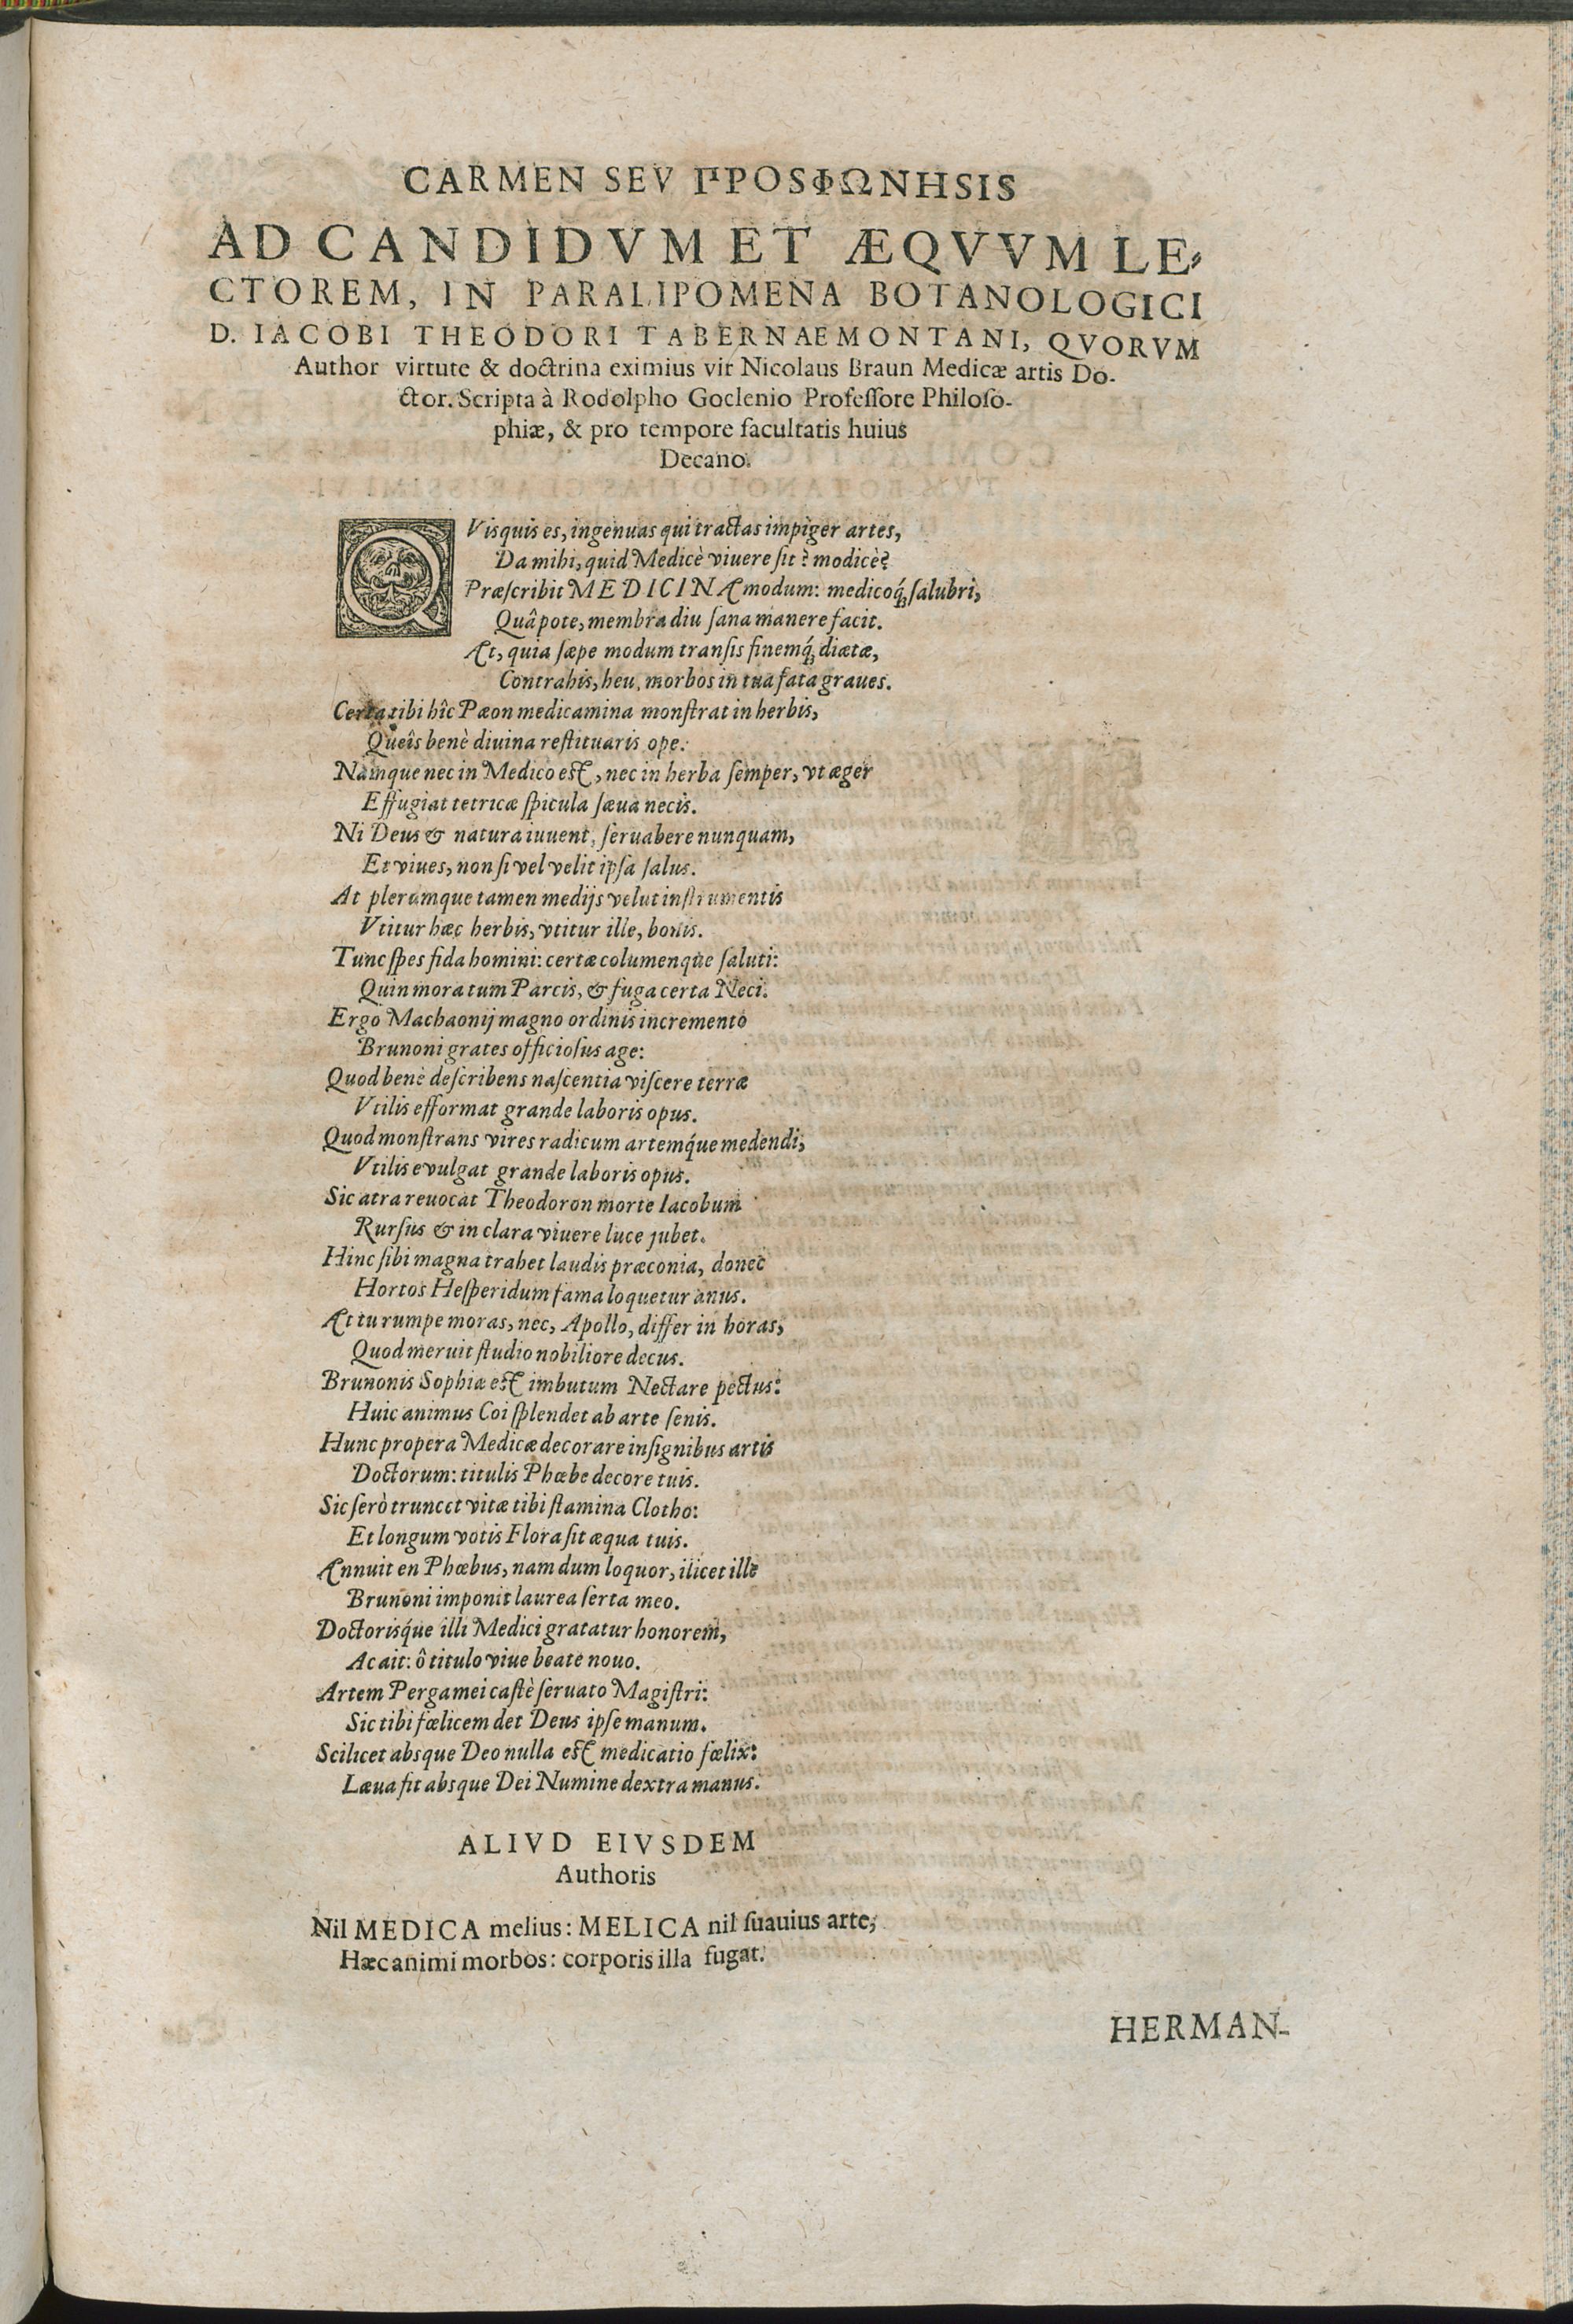 CARMEN SEV ΠΡOSΦΩNHSIS
AD CANDIDVM ET ÆQVVM LE-
CTOREM, IN PARALIPOMENA BOTANOLOGICI
D. IACOBI THEODORI TABERNAEMONTANI, QVORVM
Author virtute & doctrina eximius vir Nicolaus Braun Medicæ artis Do-
ctor. Scripta à Rodolpho Goclenio Professore Philoso-
phiæ, & pro tempore facultatis huius
Decano.
QVisquis es, ingenuas qui tractas impiger artes,
Da mihi, quid Medicè viuere sit? modicè?
Præscribit MEDICINA modum: medicoq́; salubri,
Quâ pote, membra diu sana manere facit.
At, quia sæpe modum transis finemq́; diætæ,
Contrahis, heu, morbos in tua fata graues.
Certa tibi hîc Pæon medicamina monstrat in herbis,
Queîs benè diuina restituaris ope.
Namque nec in Medico est, nec in herba semper, vt æger
Effugiat tetricæ spicula sæua necis.
Ni Deus & natura iuuent, seruabere nunquam,
Et viues, non si vel velit ipsa salus.
At plerumque tamen medijs velut instrumentis
Vtitur hæc herbis, vtitur ille, bonis.
Tunc spes fida homini: certæ columenque saluti:
Quin mora tum Parcis, & fuga certa Neci.
Ergo Machaonij magno ordinis incremento
Brunoni grates officiosus age:
Quod benè describens nascentia viscere terræ
Vtilis efformat grande laboris opus.
Quod monstrans vires radicum artemq́ue medendi,
Vtilis evulgat grande laboris opus.
Sic atra reuocat Theodoron morte Iacobum
Rursus & in clara viuere luce jubet.
Hinc sibi magna trahet laudis præconia, donec
Hortos Hesperidum fama loquetur anus.
At tu rumpe moras, nec, Apollo, differ in horas,
Quod meruit studio nobiliore decus.
Brunonis Sophiæ est imbutum Nectare pectus:
Huic animus Coi splendet ab arte senis.
Hunc propera Medicæ decorare insignibus artis
Doctorum: titulis Phœbe decore tuis.
Sic serò truncet vitæ tibi stamina Clotho:
Et longum votis Flora sit æqua tuis.
Annuit en Phœbus, nam dum loquor, ilicet ille
Brunoni imponit laurea serta meo.
Doctorisq́ue illi Medici gratatur honorem,
Ac ait: ô titulo viue beate nouo.
Artem Pergamei castè seruato Magistri:
Sic tibi fœlicem det Deus ipse manum.
Scilicet absque Deo nulla est medicatio fœlix:
Læua fit absque Dei Numine dextra manus.
ALIVD EIVSDEM
Authoris
Nil MEDICA melius: MELICA nil suauius arte,
Hæc animi morbos: corporis illa fugat.
HERMAN-